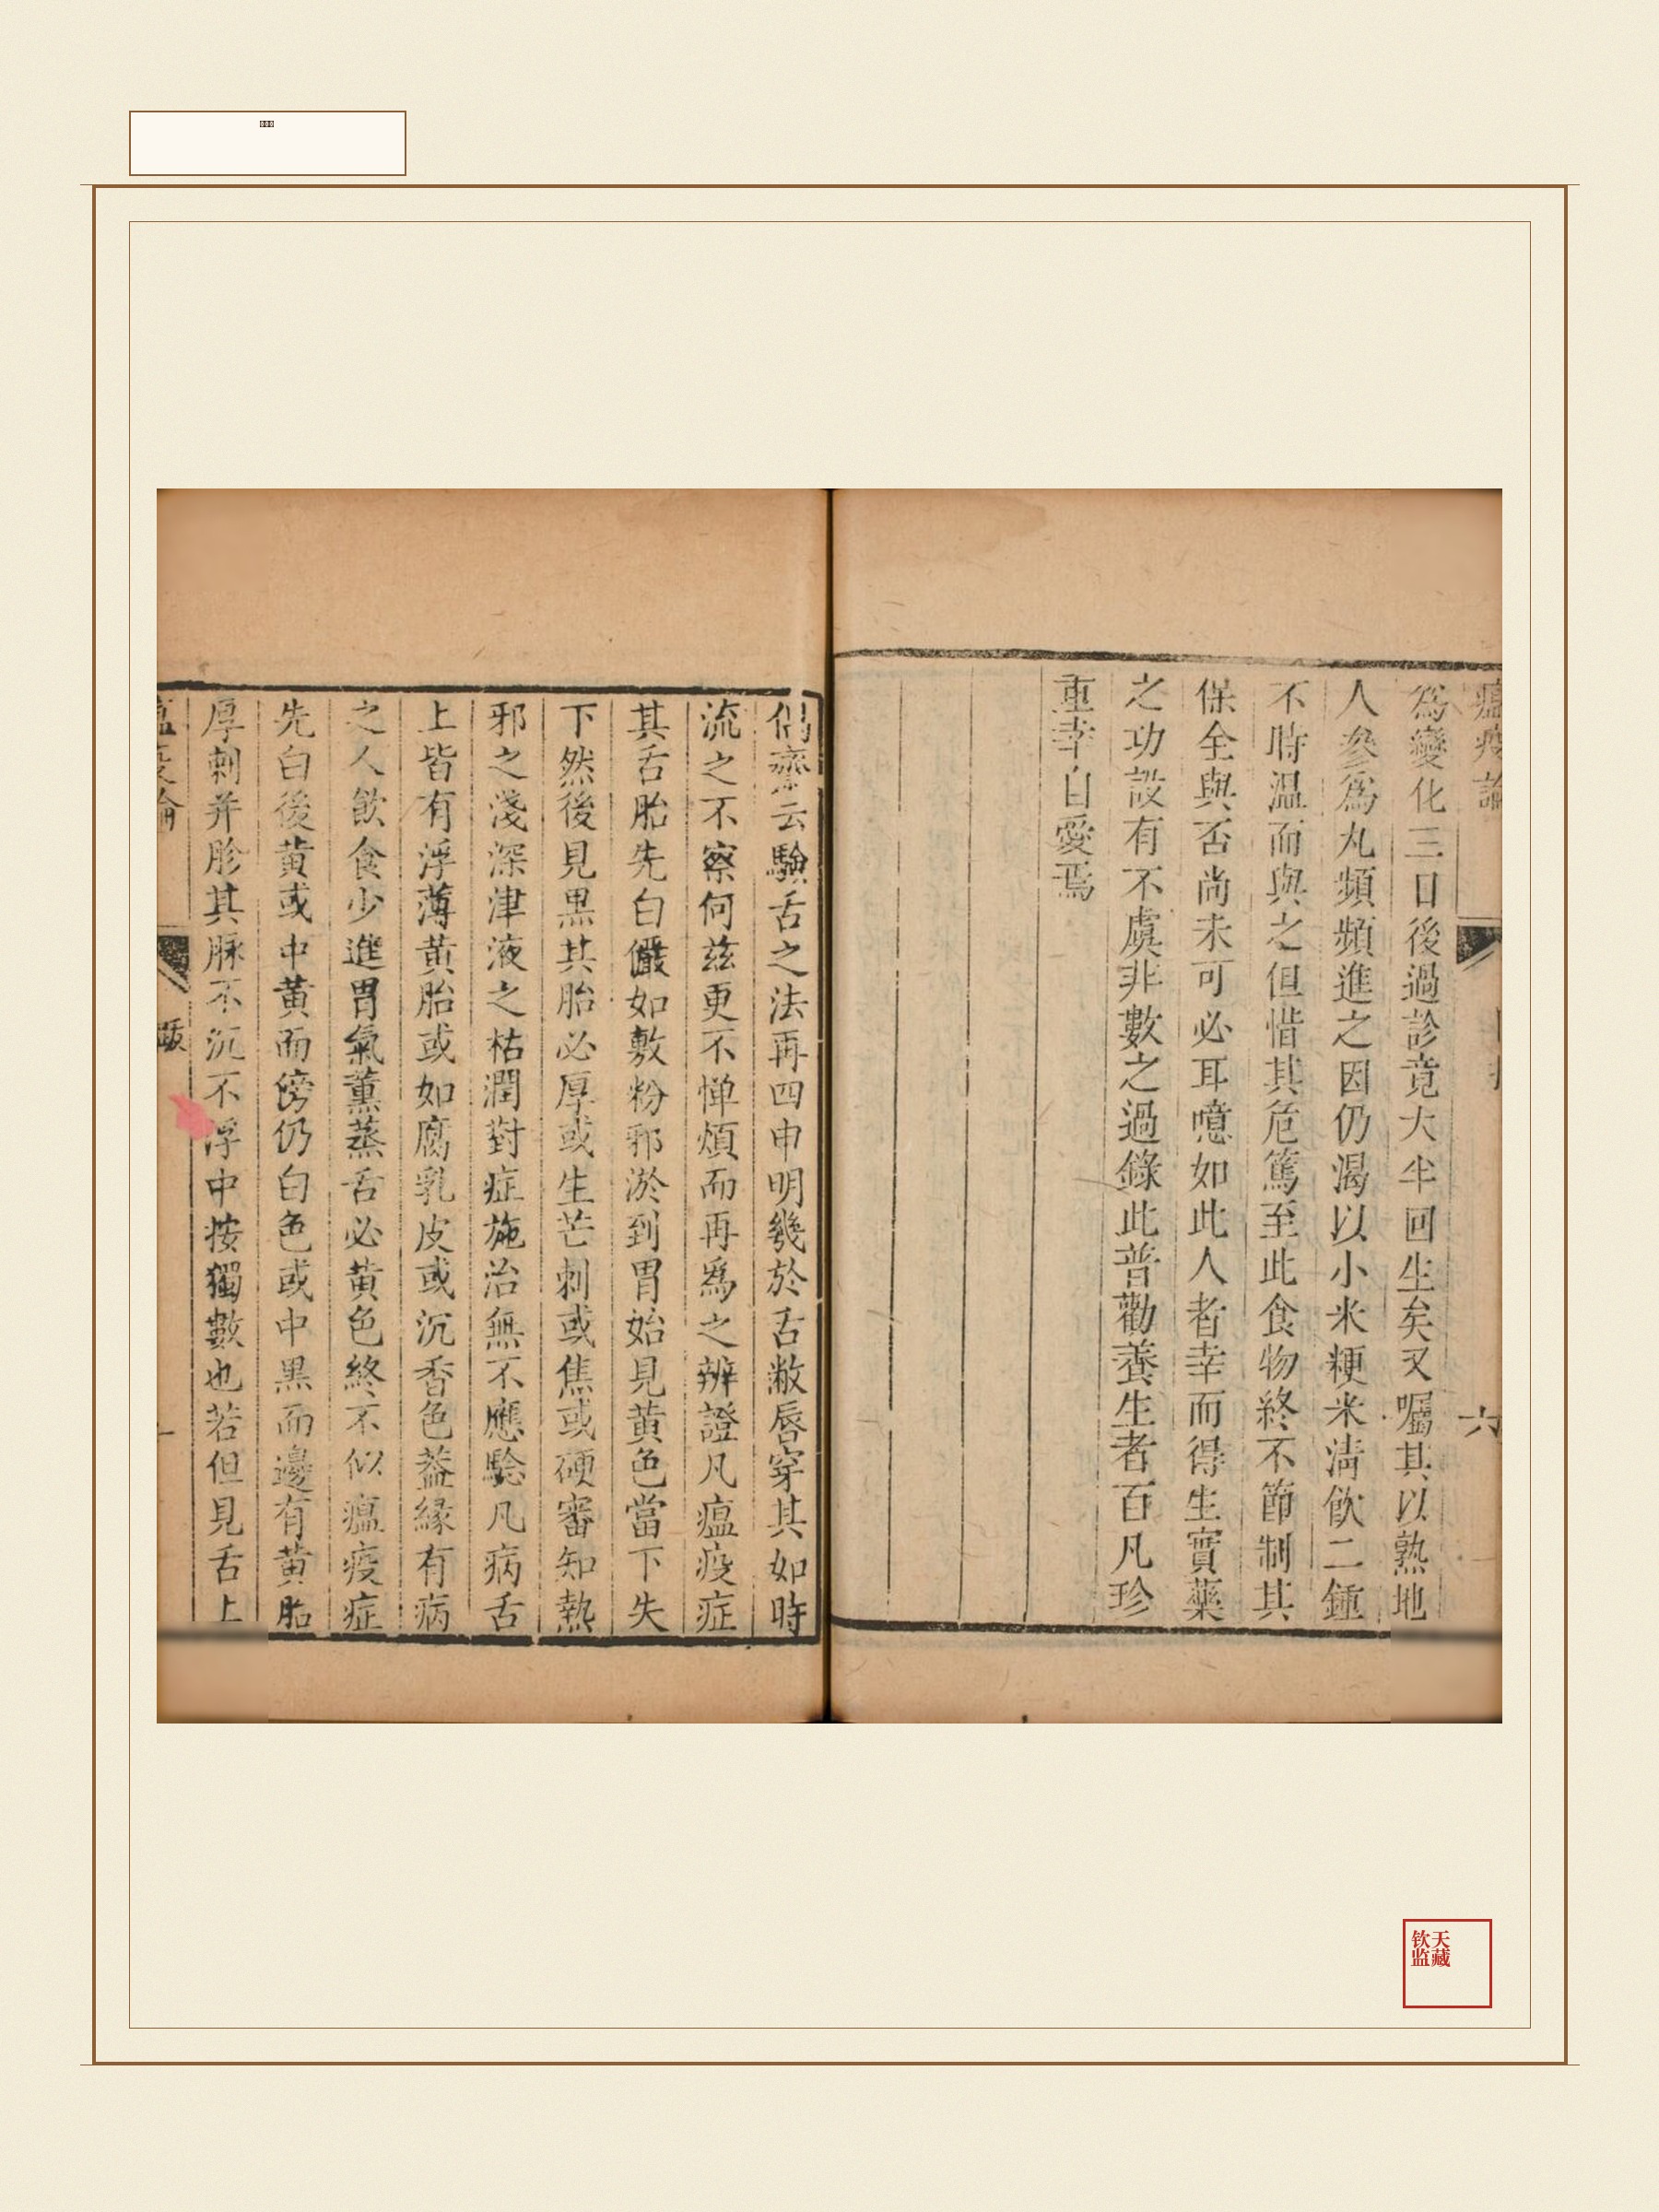 瘟疫論
六
為變化三日後過診竟大半回生矣又囑其以熟地
人參為丸頻頻進之因仍渴以小米粳米清飲二鍾
不時溫而與之但惜其危篤至此食物終不節制其
保全與否尚未可必耳噫如此人者幸而得生實藥
之功設有不虞非數之過錄此普勸養生者百凡珍
重幸自愛焉
偶齋云驗舌之法再四申明幾於舌敝唇穿其如時
流之不察何茲更不憚煩而再為之辨證凡瘟疫症
其舌胎先白儼如敷粉邪淤到胃始見黃色當下失
下然後見黑其胎必厚或生芒刺或焦或硬審知熱
邪之淺深津液之枯潤對症施治無不應驗凡病舌
上皆有浮薄黃胎或如腐乳皮或沉香色蓋緣有病
之人飲食少進胃氣薰蒸舌必黃色終不似瘟疫症
先白後黃或中黃而傍仍白色或中黑而邊有黃胎
厚刺并胗其脉不沉不浮中按獨數也若但見舌上
瘟疫論
跋
天藏
钦监